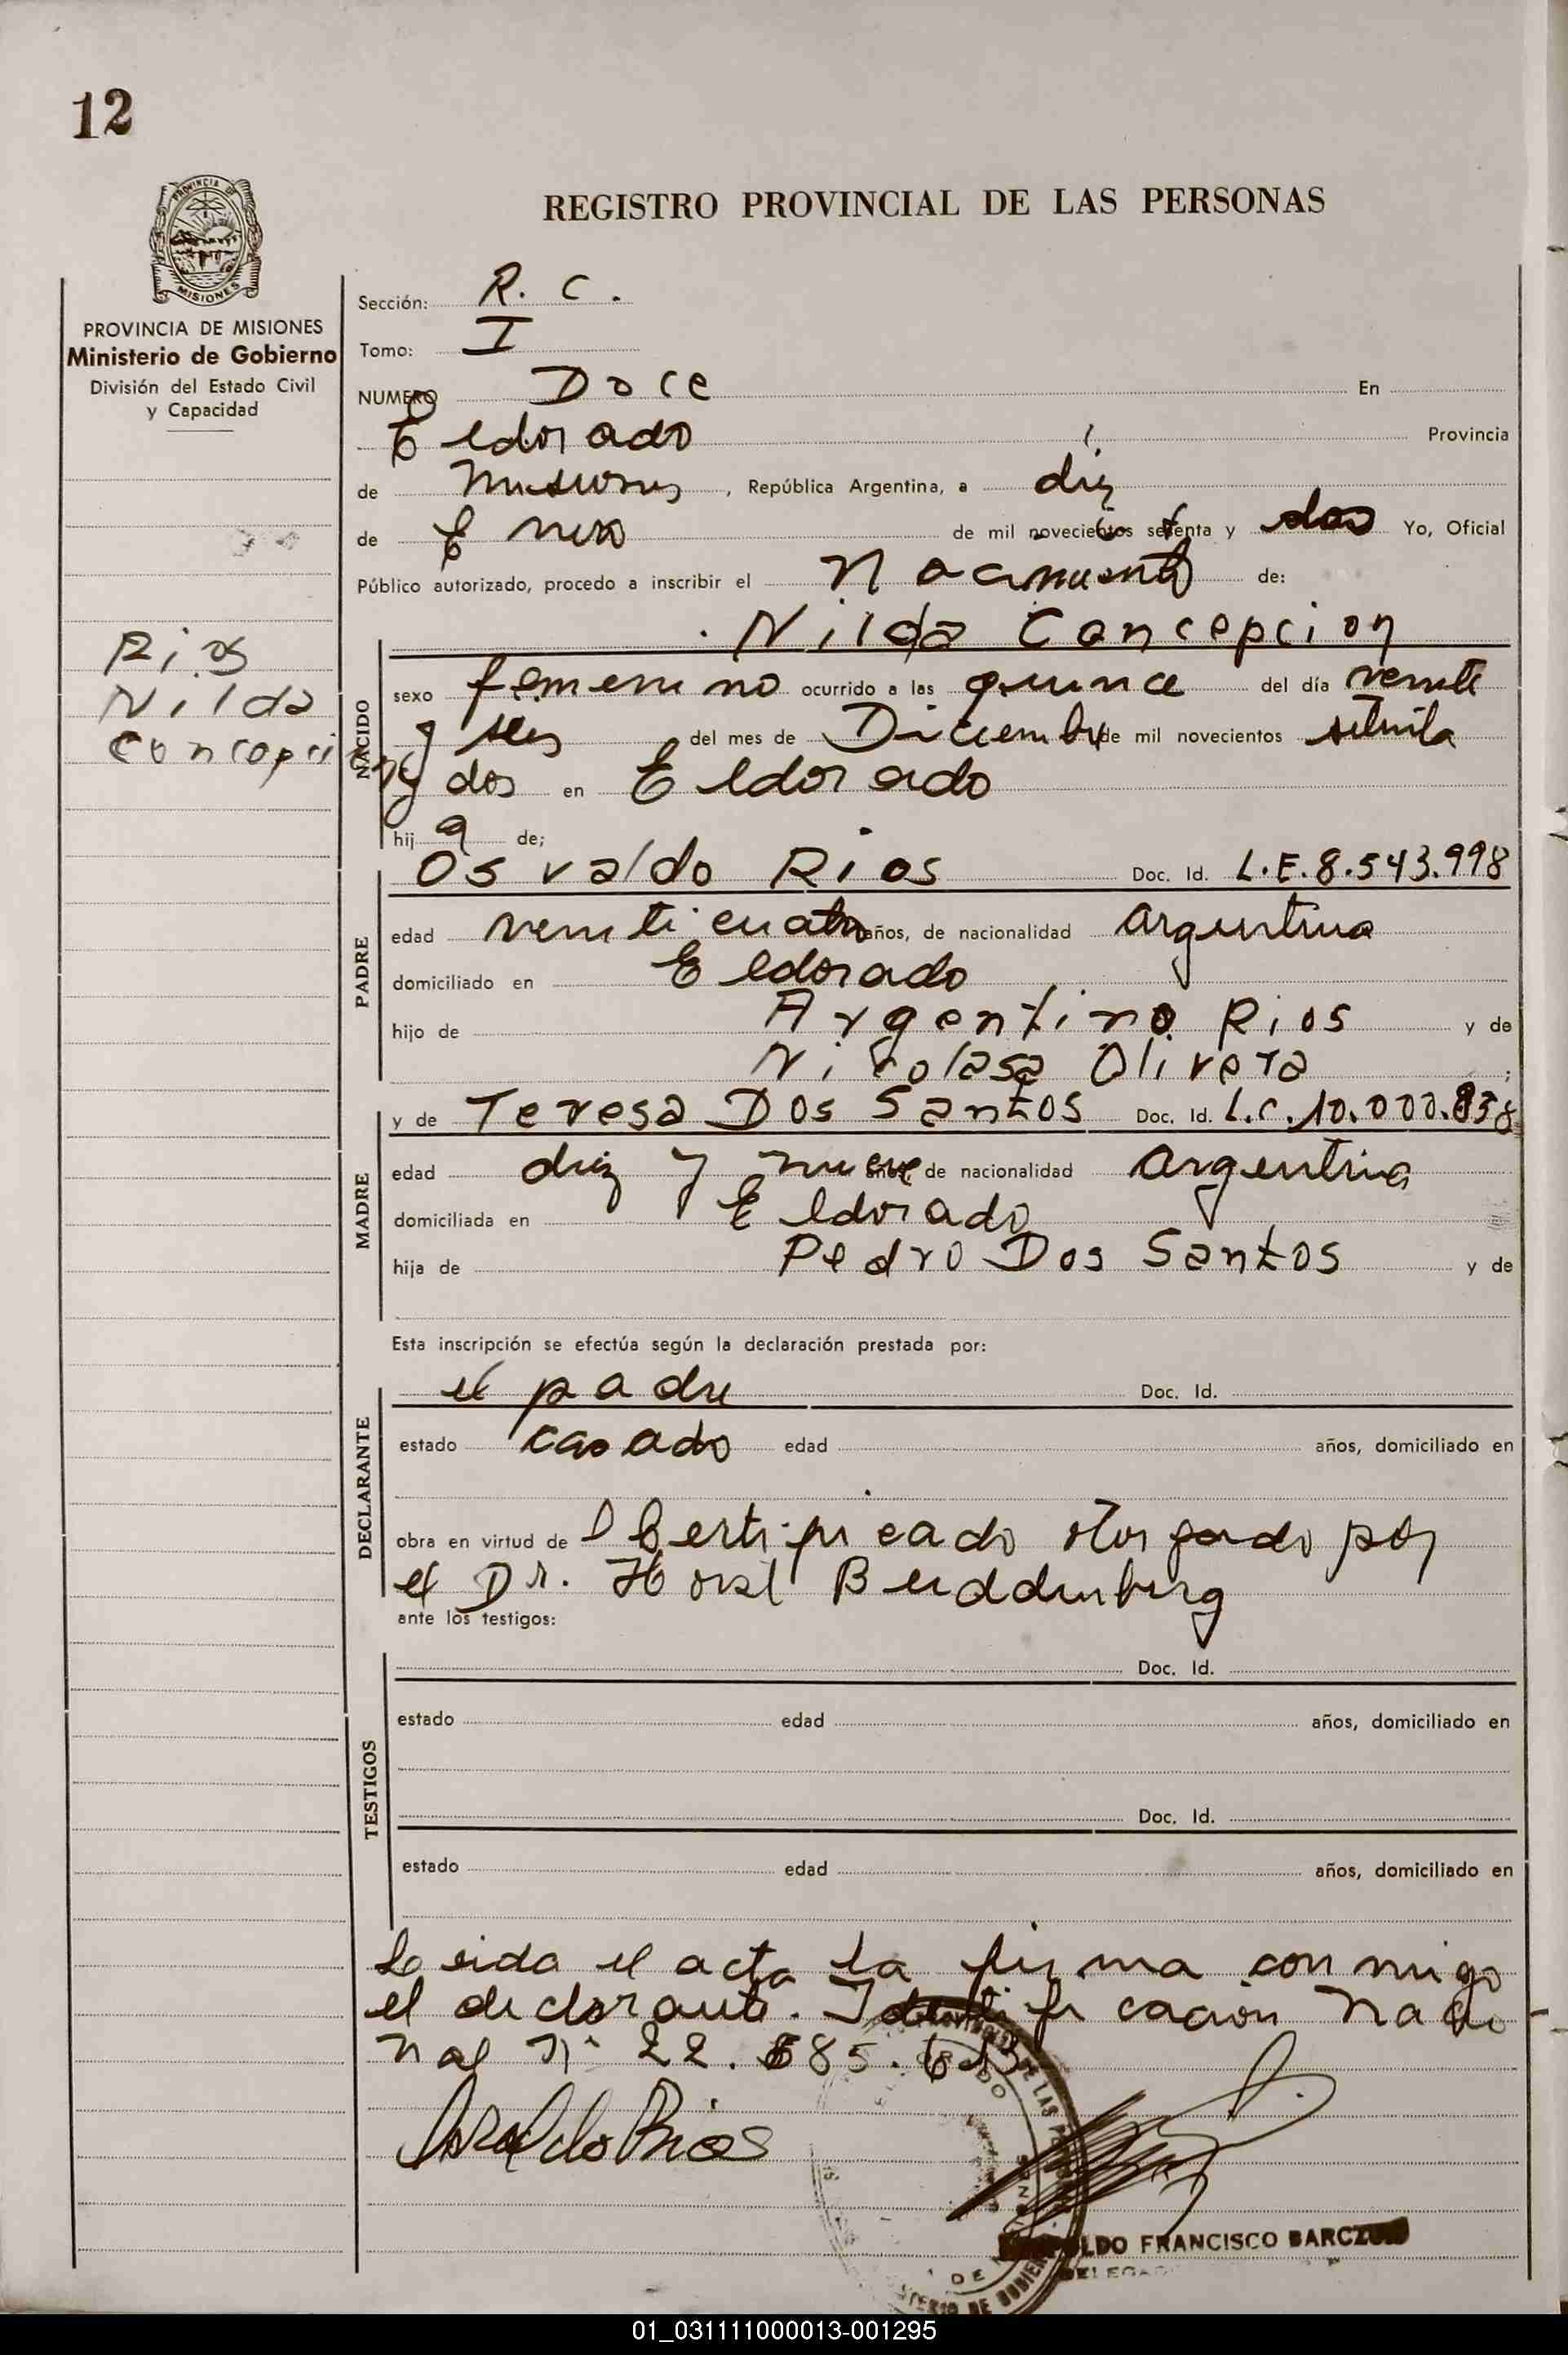 12
REGISTRO PROVINCIAL DE LAS PERSONAS
PROVINCIA DE
MISIONES
PROVINCIA DE MISIONES
Ministerio de Gobierno
División del Estado Civil
y Capacidad
Rios
Nilda
Concepcion
Sección: R. C.
Tomo: I
NUMERO Doce En
Eldorado Provincia
de Misiones, República Argentina, a diez
de Enero de mil novecientos setenta y dos Yo, Oficial
Público autorizado, procedo a inscribir el Nacimiento de:
Nilda Concepcion
NACIDO
sexo femenino ocurrido a las quince del día veinte
y seis del mes de Diciembre de mil novecientos setenta
y dos en Eldorado
hij a de;
PADRE
Osvaldo Rios Doc. Id. L.E. 8.543.998
edad veinticuatro años, de nacionalidad argentina
domiciliado en Eldorado
hijo de Argentino Rios y de
Nicolasa Olivera ;
MADRE
y de Teresa Dos Santos Doc. Id. L.C. 10.000.838
edad diez y nueve años, de nacionalidad argentina
domiciliada en Eldorado
hija de Pedro Dos Santos y de
Esta inscripción se efectúa según la declaración prestada por:
DECLARANTE
el padre Doc. Id.
estado casado edad años, domiciliado en
obra en virtud de Certificado otorgado por
el Dr. Horst
ante los testigos:
TESTIGOS
Doc. Id.
estado edad años, domiciliado en
Doc. Id.
estado edad años, domiciliado en
Leida el acta la firma conmigo
el declarante. Identificación Nacio-
nal Nº 22.685.613
Osvaldo Rios
LDO FRANCISCO BARCZU
DELEGA
01_031111000013-001295